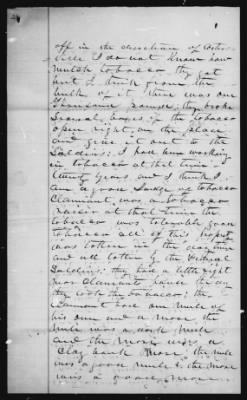 off in the direction of
ville I do not know how
much tobacco they got
but I think from the
bulk of it there was one
thousand pounds; they broke
several boxes of the tobacco
open right on the place
and give it out to the
Soldiers: I have been working
in tobacco at that time
years and I think I
am a good Judge of tobacco
Claimant was a tobacco
raiser at that time the
tobacco was tolerable good
tobacco all of this
was taken in the day time
and all taken by the Federal
Soldiers: they had a little fight
near Claimants house the day
they took the tobacco; the
Claimant have one mule of
his own and a mare the
mule was a work mule
and the mare was a
Clay bank mare the mule
was a good mule & the mare
was a good mare